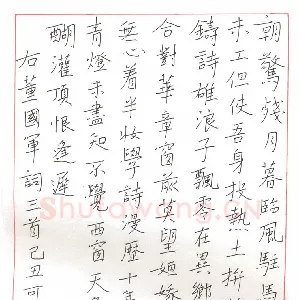 朝驚殘月暮臨風駐馬
未工但使吾身投熱土拚
鑄詩雄浪子飄零在異鄉
合對華章窗前望
無心着半妝學詩漫歷十年
青燈未盡知不覺西窗天
醐灌頂恨逢遲
右董國軍詞三首己丑可